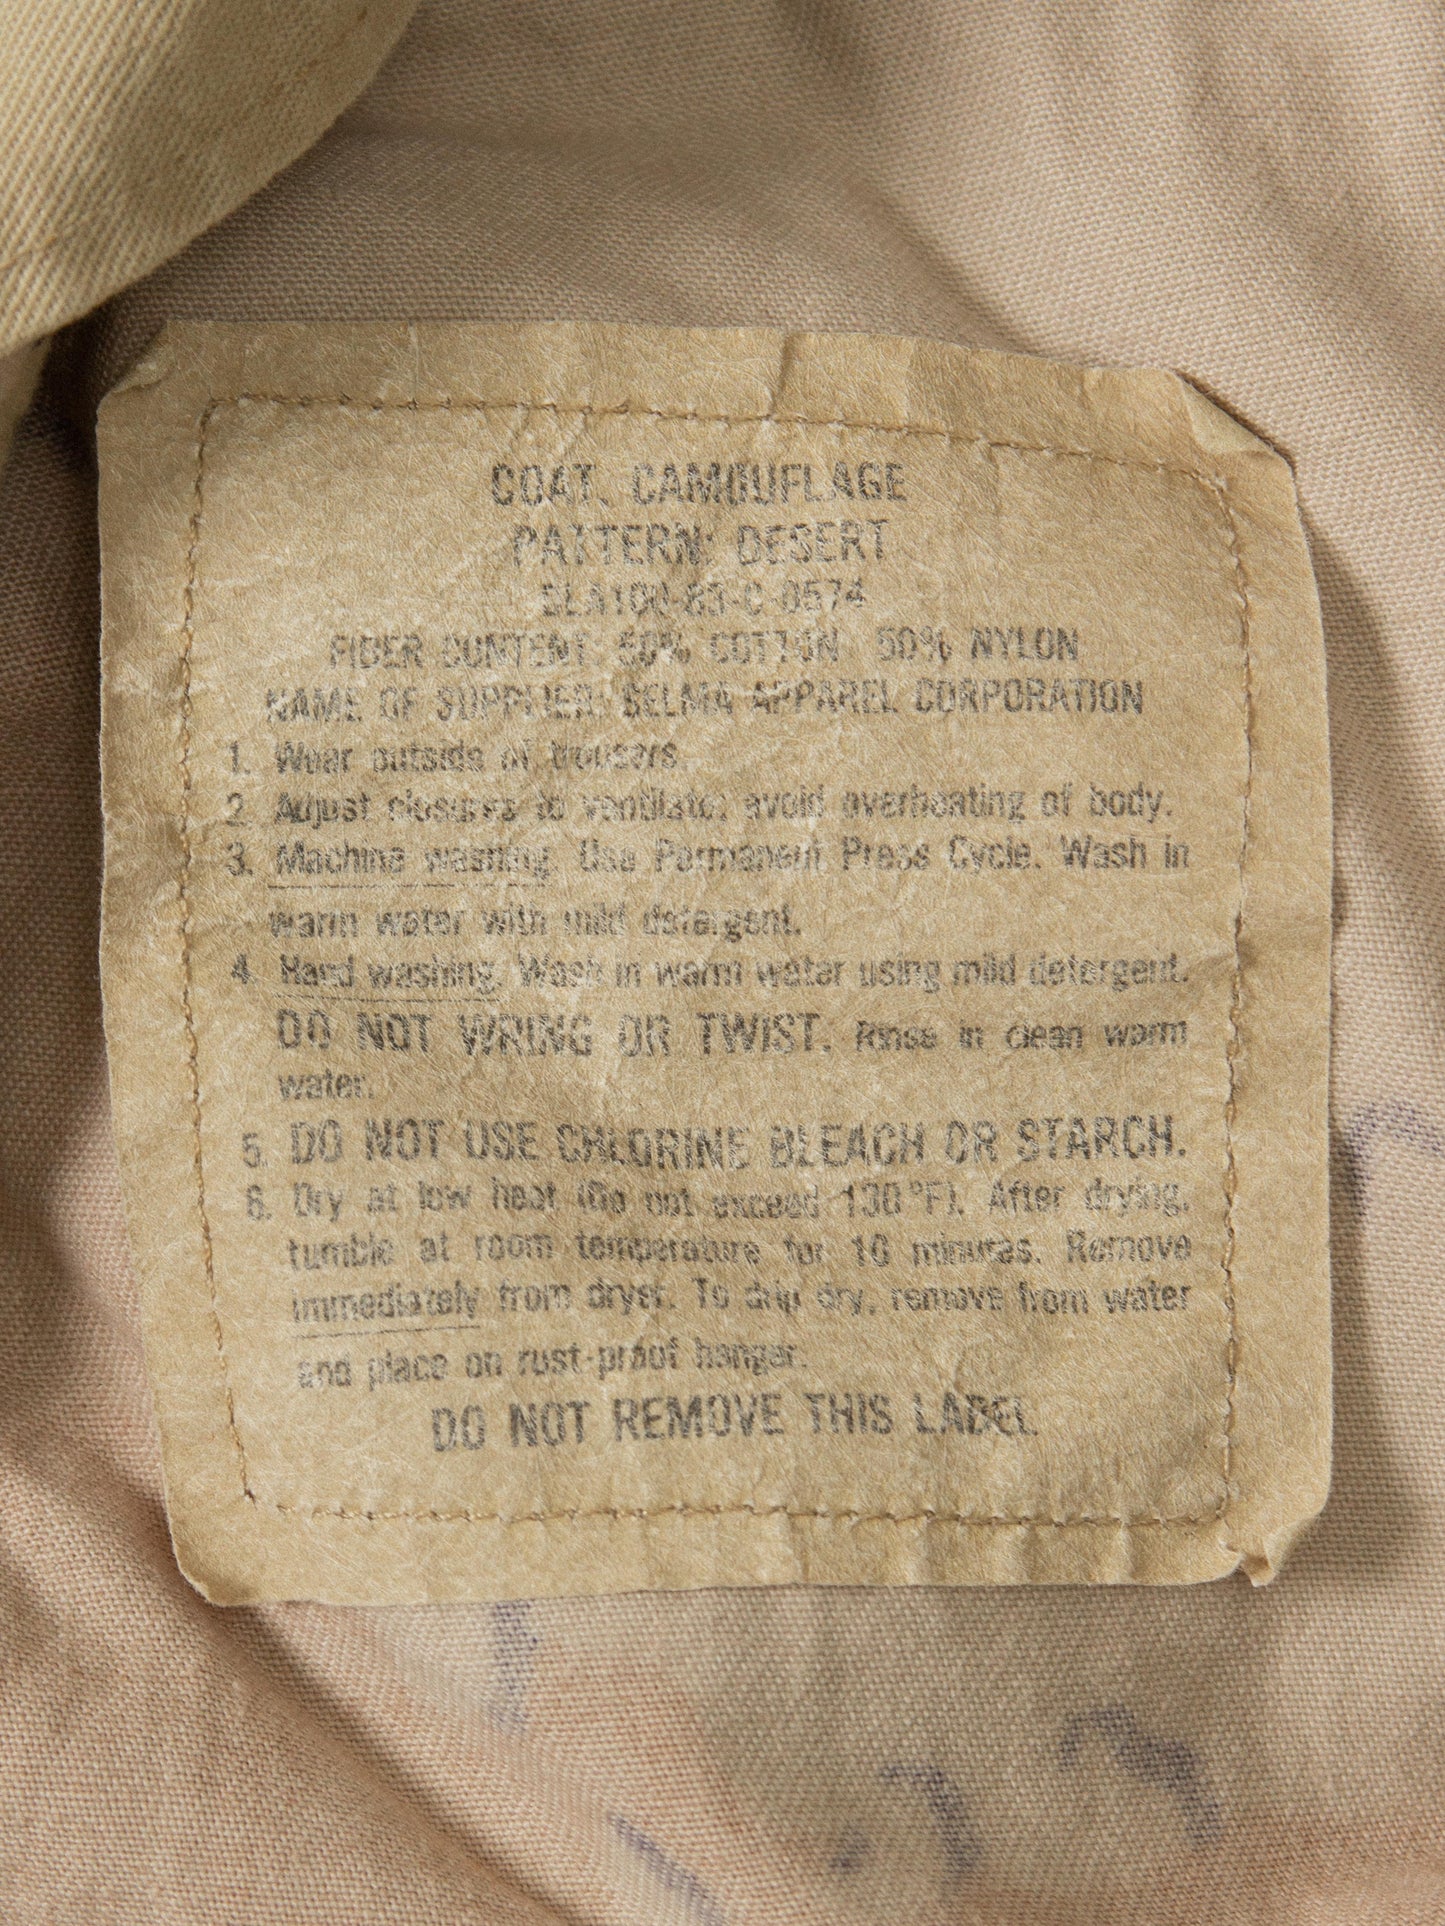 COAT, CAMOUFLAGE
PATTERN: DESERT
DLA100-83-C-0574
FIBER CONTENT: 50% COTTON 50% NYLON
NAME OF SUPPLIER: SELMA APPAREL CORPORATION
1. Wear outside of trousers.
2. Adjust closures to ventilate; avoid overheating of body.
3. Machine washing. Use Permanent Press Cycle. Wash in
warm water with mild detergent.
4. Hand washing. Wash in warm water using mild detergent.
DO NOT WRING OR TWIST. Rinse in clean warm
water.
5. DO NOT USE CHLORINE BLEACH OR STARCH.
6. Dry at low heat (Do not exceed 130°F). After drying,
tumble at room temperature for 10 minutes. Remove
immediately from dryer. To drip dry, remove from water
and place on rust-proof hanger.
DO NOT REMOVE THIS LABEL